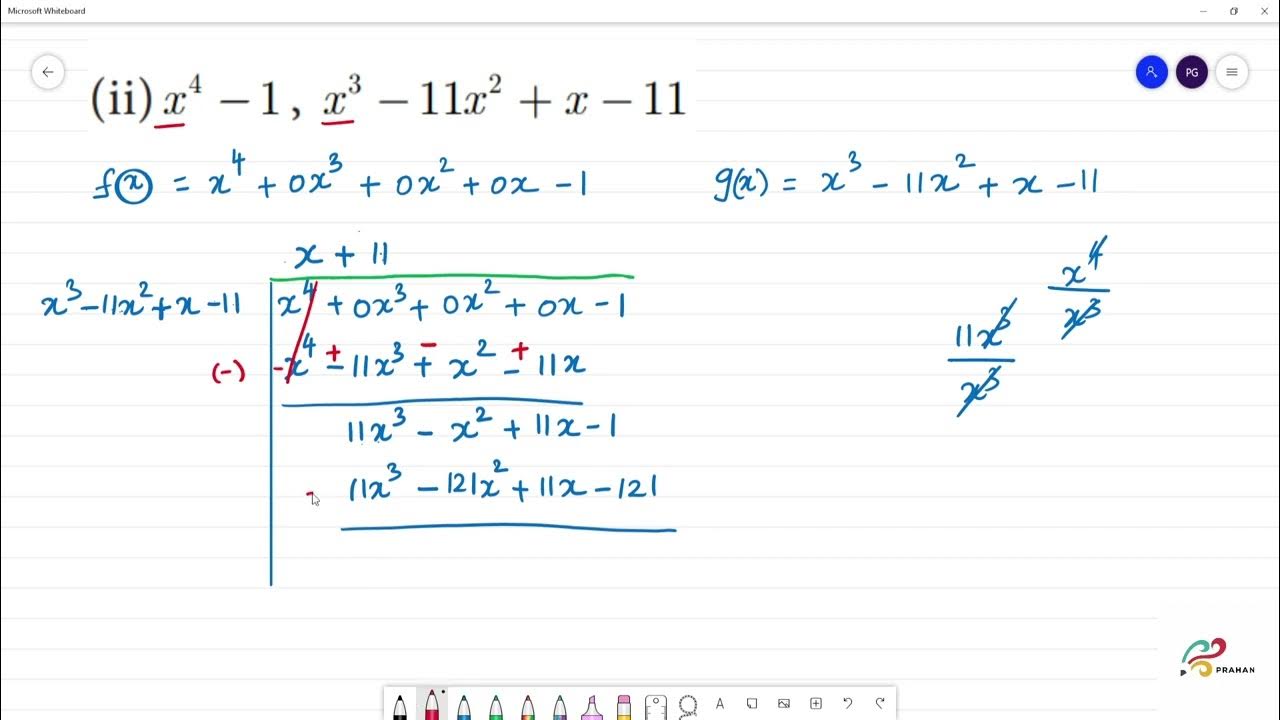 Microsoft Whiteboard
(ii) x⁴ − 1, x³ − 11x² + x − 11
PG
f(x) = x⁴ + 0x³ + 0x² + 0x − 1
g(x) = x³ − 11x² + x − 11
x + 11
x³ − 11x² + x − 11
x⁴ + 0x³ + 0x² + 0x − 1
(−) − + − +
x⁴ − 11x³ + x² − 11x
11x³ − x² + 11x − 1
− 11x³ − 121x² + 11x − 121
x⁴
x³
11x³
x³
PRAHAN
A